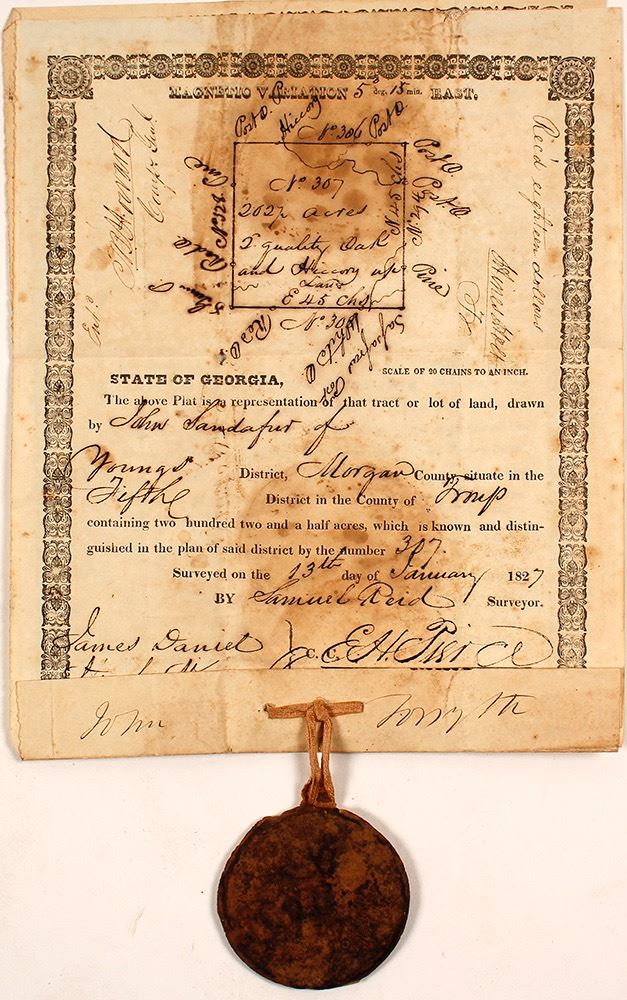 MAGNETIC VARIATION 5 deg. 15 min. EAST.
Post O. P.
Hiccory
No 306
Post O.
Post O
Post O
Pine
No 307
202½ acres
2 quality Oak
and Hiccory up
Land
E 45 Chs
No 308
Red O.
White O
Sassafras
Red O.
Rec'd eighteen dollars
Comp Genl
SCALE OF 20 CHAINS TO AN INCH.
STATE OF GEORGIA,
The above Plat is a representation of that tract or lot of land, drawn
by John Sandafur of
Youngs District, Morgan County situate in the
Fifth District in the County of Troup
containing two hundred two and a half acres, which is known and distin-
guished in the plan of said district by the number 307.
Surveyed on the 13th day of January 1827
BY Samuel Reid Surveyor.
James Daniel
E. H. Pierce
John Forsyth